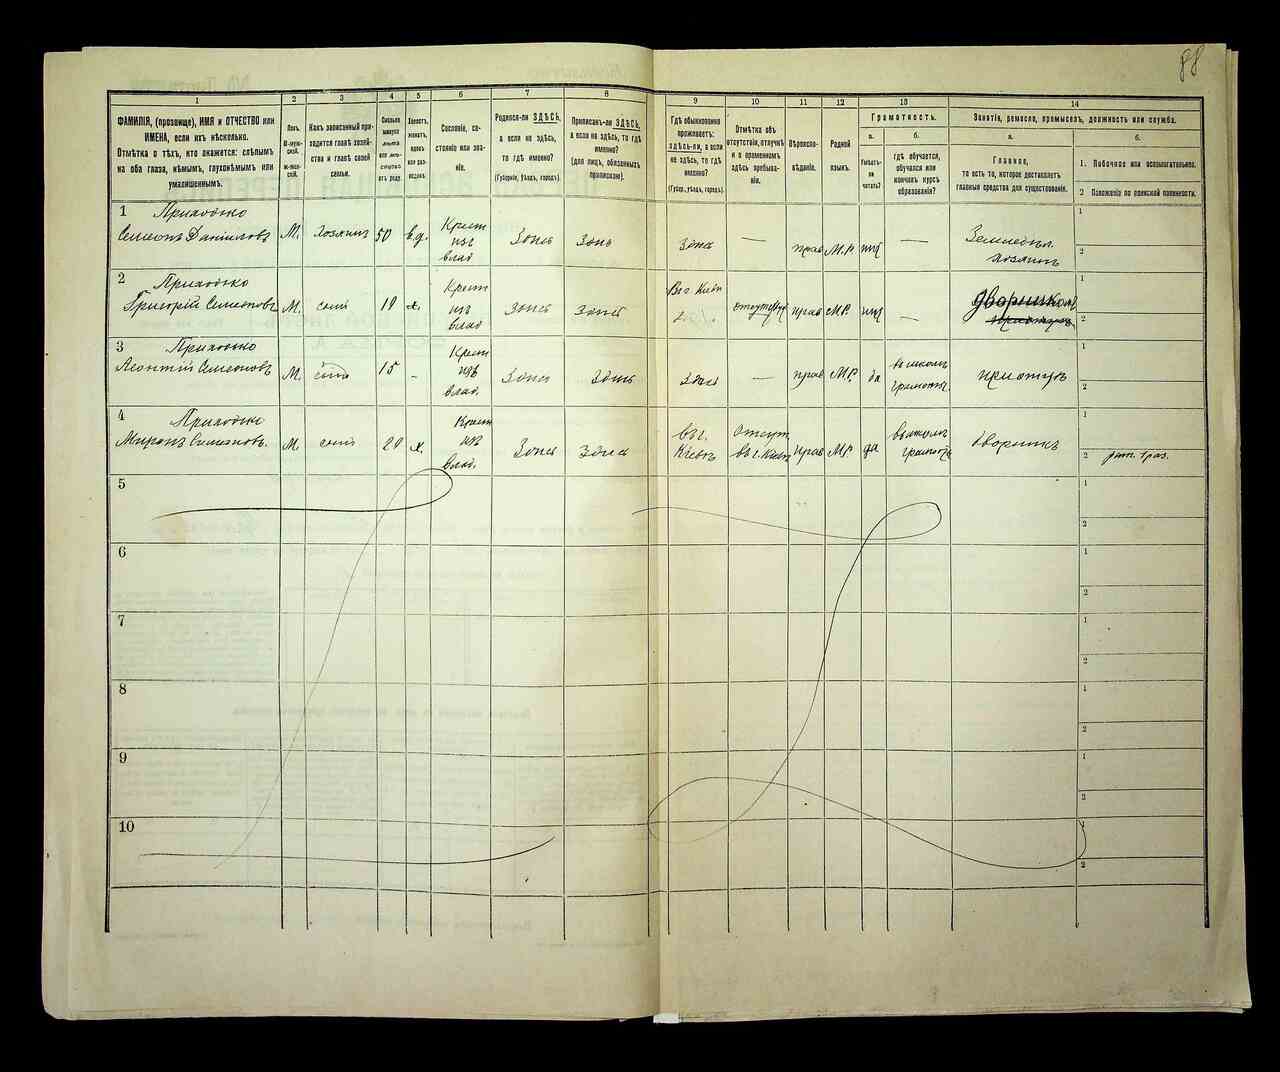 88
1
2
3
4
5
6
7
8
9
10
11
12
13
14
ФАМИЛІЯ, (прозвище), ИМЯ и ОТЧЕСТВО или
ИМЕНА, если ихъ нѣсколько.
Отмѣтка о тѣхъ, кто окажется: слѣпымъ
на оба глаза, нѣмымъ, глухонѣмымъ или
умалишеннымъ.
Полъ.
М-муж-
ской.
Ж-жен-
скій.
Какъ записанный при-
ходится главѣ хозяй-
ства и главѣ своей
семьи.
Сколько
минуло
лѣтъ
или мѣ-
сяцевъ
отъ роду.
Холостъ,
женатъ,
вдовъ
или раз-
веденъ.
Сословіе, со-
стояніе или зва-
ніе.
Родился-ли ЗДѢСЬ,
а если не здѣсь,
то гдѣ именно?
(Губернія, уѣздъ, городъ).
Приписанъ-ли ЗДѢСЬ,
а если не здѣсь, то гдѣ
именно?
(для лицъ, обязанныхъ
припискою).
Гдѣ обыкновенно
проживаетъ:
здѣсь-ли, а если
не здѣсь, то гдѣ
именно?
(Губерн., уѣздъ, городъ).
Отмѣтка объ
отсутствіи, отлучкѣ
и о временномъ
здѣсь пребыва-
ніи.
Вѣроиспо-
вѣданіе.
Родной
языкъ.
Грамотность.
а.
Умѣетъ-
ли
читать?
б.
гдѣ обучается,
обучался или
кончилъ курсъ
образованія?
Занятіе, ремесло, промыселъ, должность или служба.
а.
Главное,
то есть то, которое доставляетъ
главныя средства для существованія.
б.
1. Побочное или вспомогательное.
2 Положеніе по воинской повинности.
1 Приходько
Семеонъ Даниловъ М. Хозяинъ 50 вд. Крест изъ влад Здѣсь Здѣсь Здѣсь — прав М.Р. нѣтъ — Земледѣл. хозяинъ
1
2
2 Приходько
Григорій Семеоновъ М. сынъ х. Крест изъ влад Здѣсь Здѣсь прав МР. нѣтъ — дворникъ
1
2
3 Приходько
Леонтій Семеоновъ М. сынъ 15 - Крест изъ влад. Здѣсь Здѣсь Здѣсь — прав МР. да въ школѣ грамоты
1
2
4 Приходько
Миронъ Семеоновъ. М. сынъ х. Крест изъ влад. Здѣсь Здѣсь въ г. Кіевѣ Отсут. въ г. Кіевѣ прав МР. да въ школѣ грамоты дворникъ
1
2 рат. 1 раз.
5
1
2
6
1
2
7
1
2
8
1
2
9
1
2
10
1
2